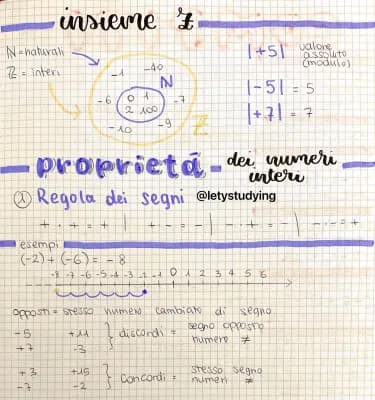 insieme Z
N=naturali
Z = interi
-1 -40
N
-6 0 1 -7
2 100
-10 -9
Z
|+5| valore assoluto (modulo)
|-5| = 5
|+7| = 7
proprietá dei numeri interi
① Regola dei segni @letystudying
+ · + = + | + · - = - | - · + = - | - · - = +
esempi
(-2) + (-6) = - 8
-8 -7 -6 -5 -4 -3 -2 -1 0 1 2 3 4 5 6
opposti = stesso numero cambiato di segno
-5 +11 } discordi = segno opposto
+7 -3 numero ≠
+3 +15 } concordi = stesso segno
-7 -2 numeri ≠